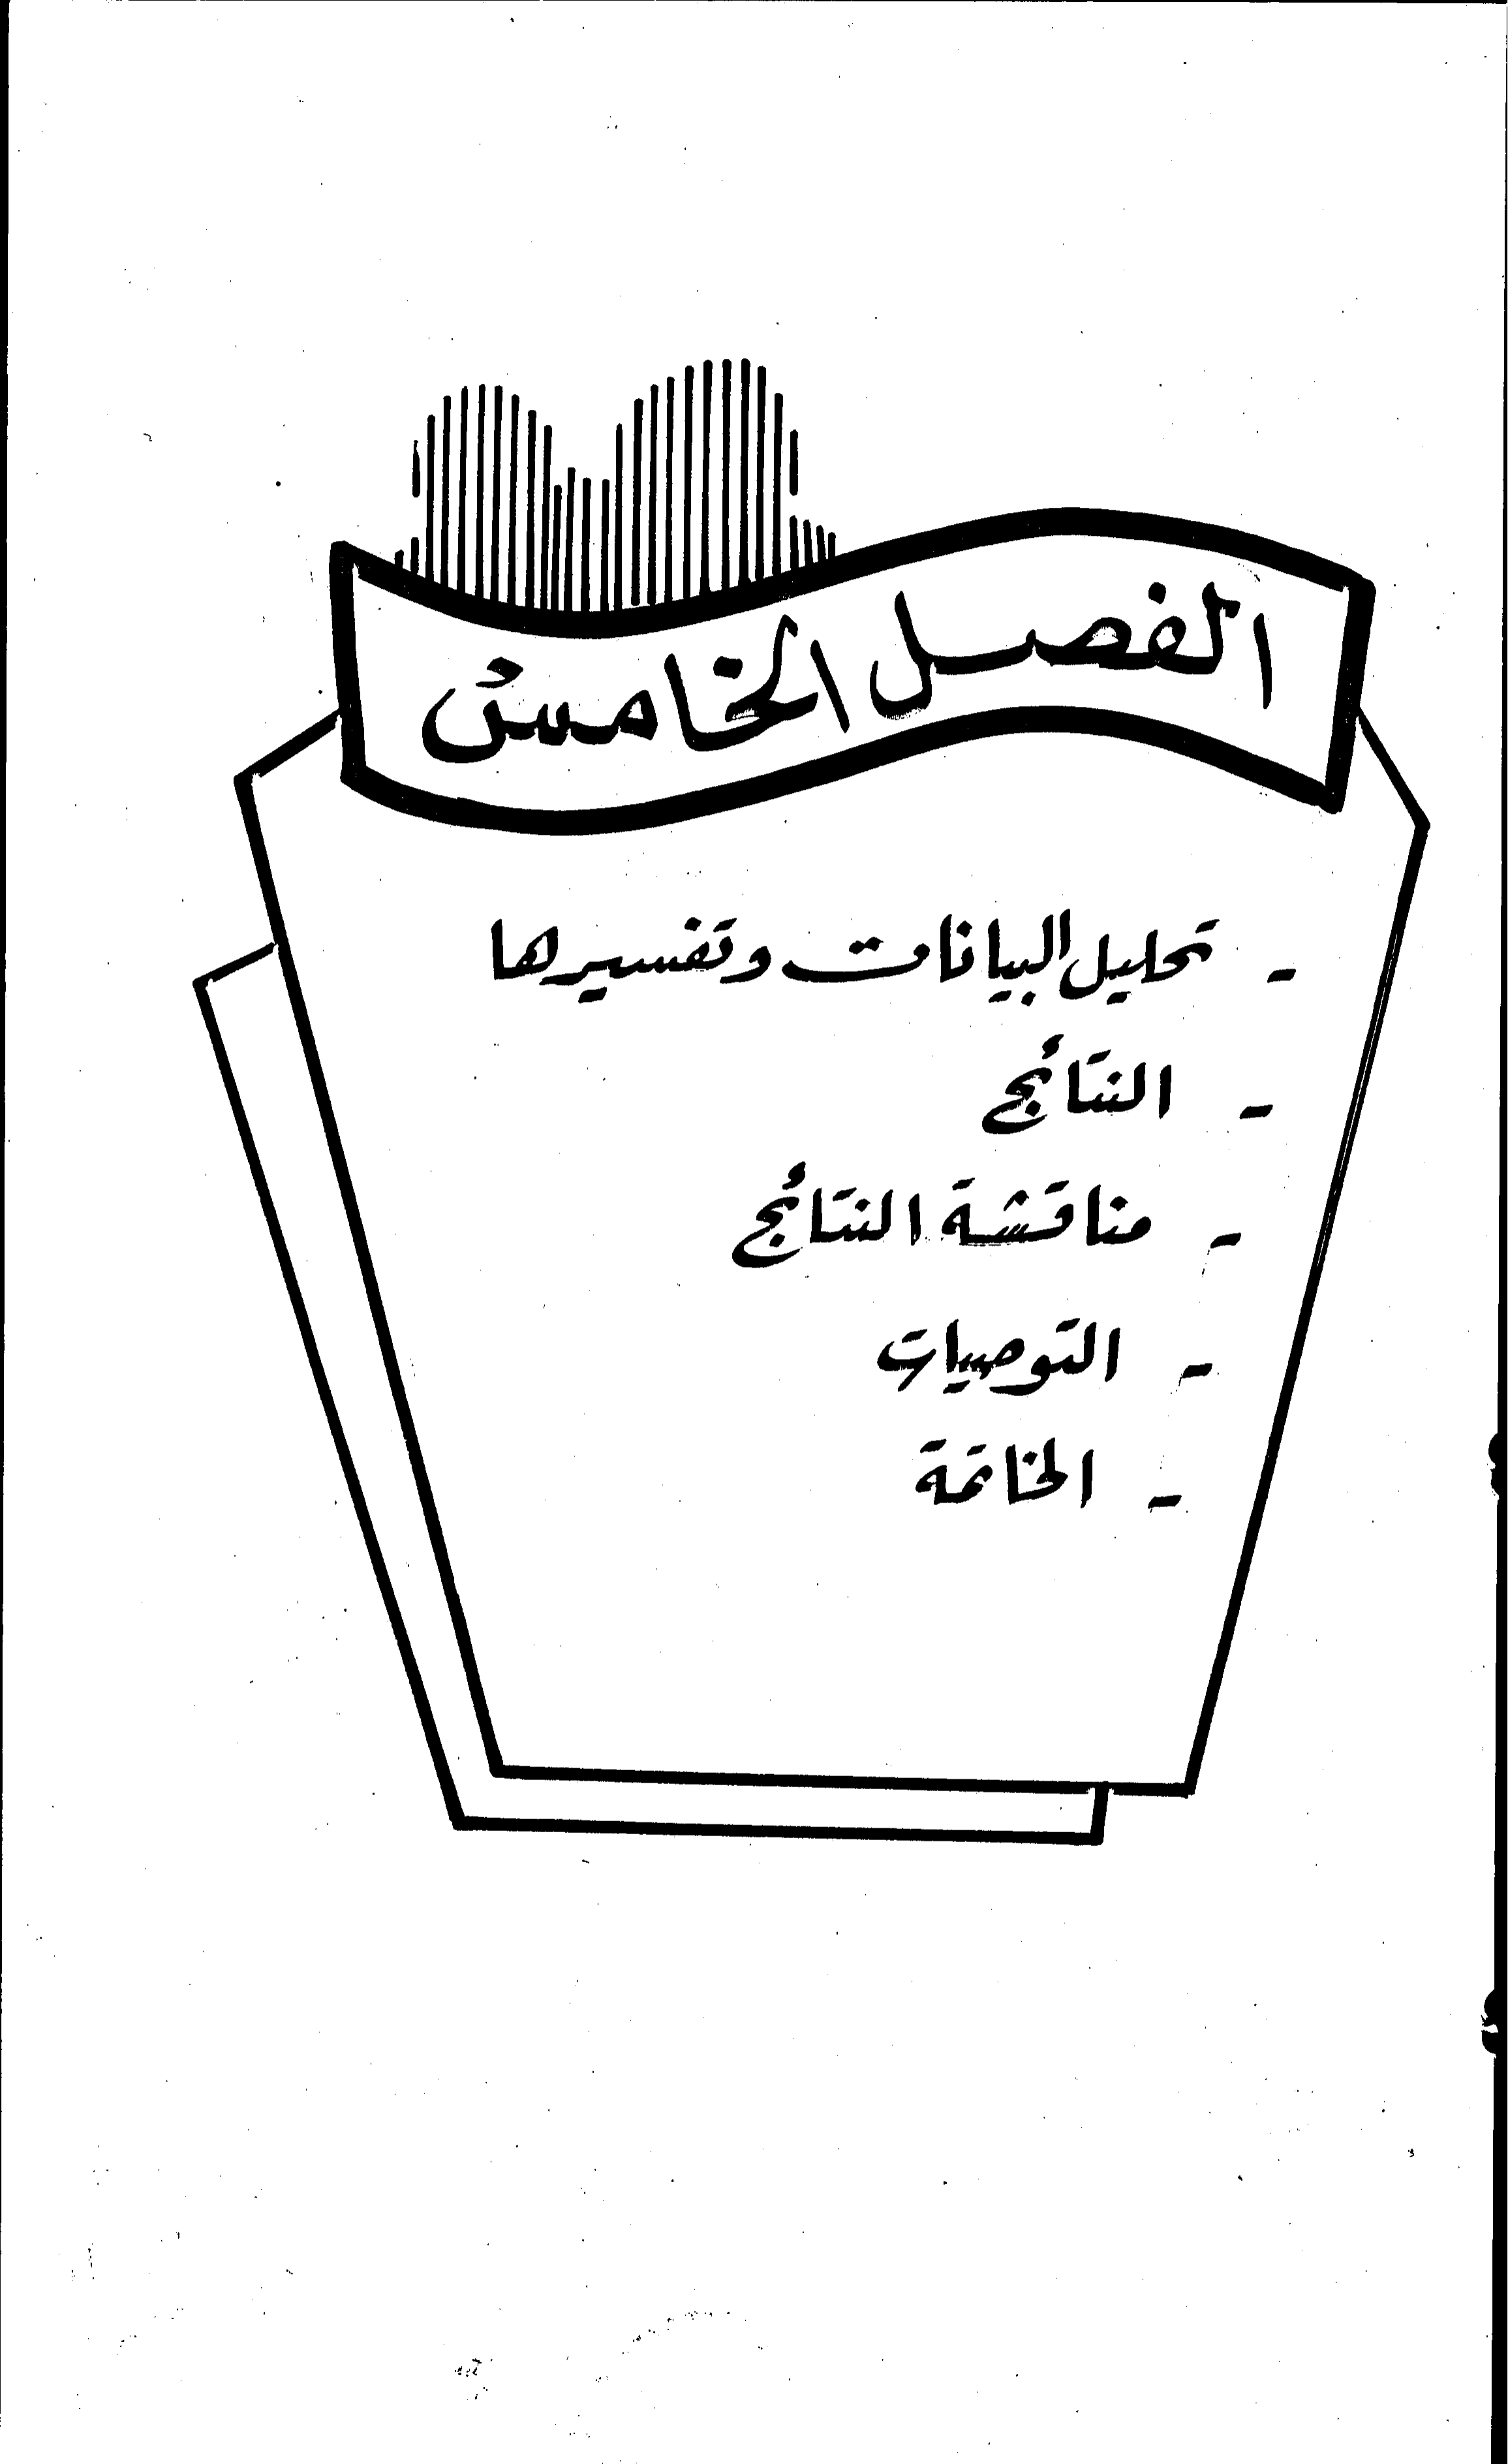 الفصل الخامس
- تحليل البيانات وتفسيرها
- النتائج
- مناقشة النتائج
- التوصيات
- الخاتمة